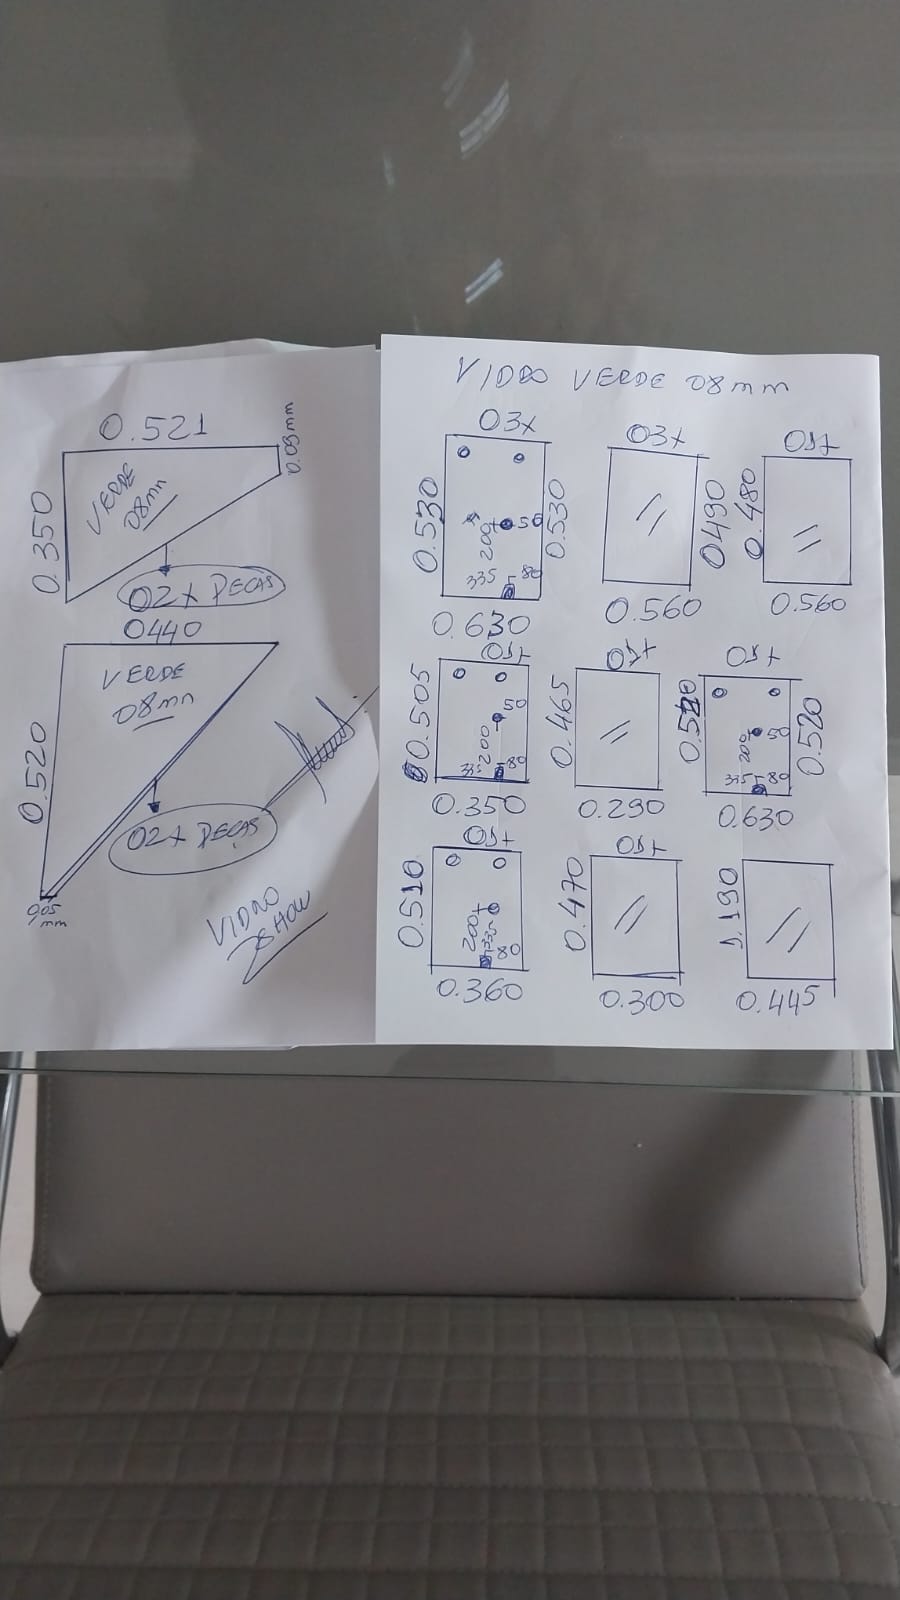 0.521
0.09mm
0.350
VERDE
08mm
02x PEÇAS
0440
VERDE
08mm
0.520
02x PEÇAS
0,05
mm
VIDRO
SHOW
VIDRO VERDE 08mm
03x
0.530
0.530
50
200
335
80
0.630
03x
0490
0.560
01x
0.480
0.560
01x
0.505
50
200
335
80
0.350
01x
0.465
0.290
01x
0.520
0.520
50
200
335
80
0.630
01x
0.510
200
335
80
0.360
01x
0.470
0.300
1.190
0.445